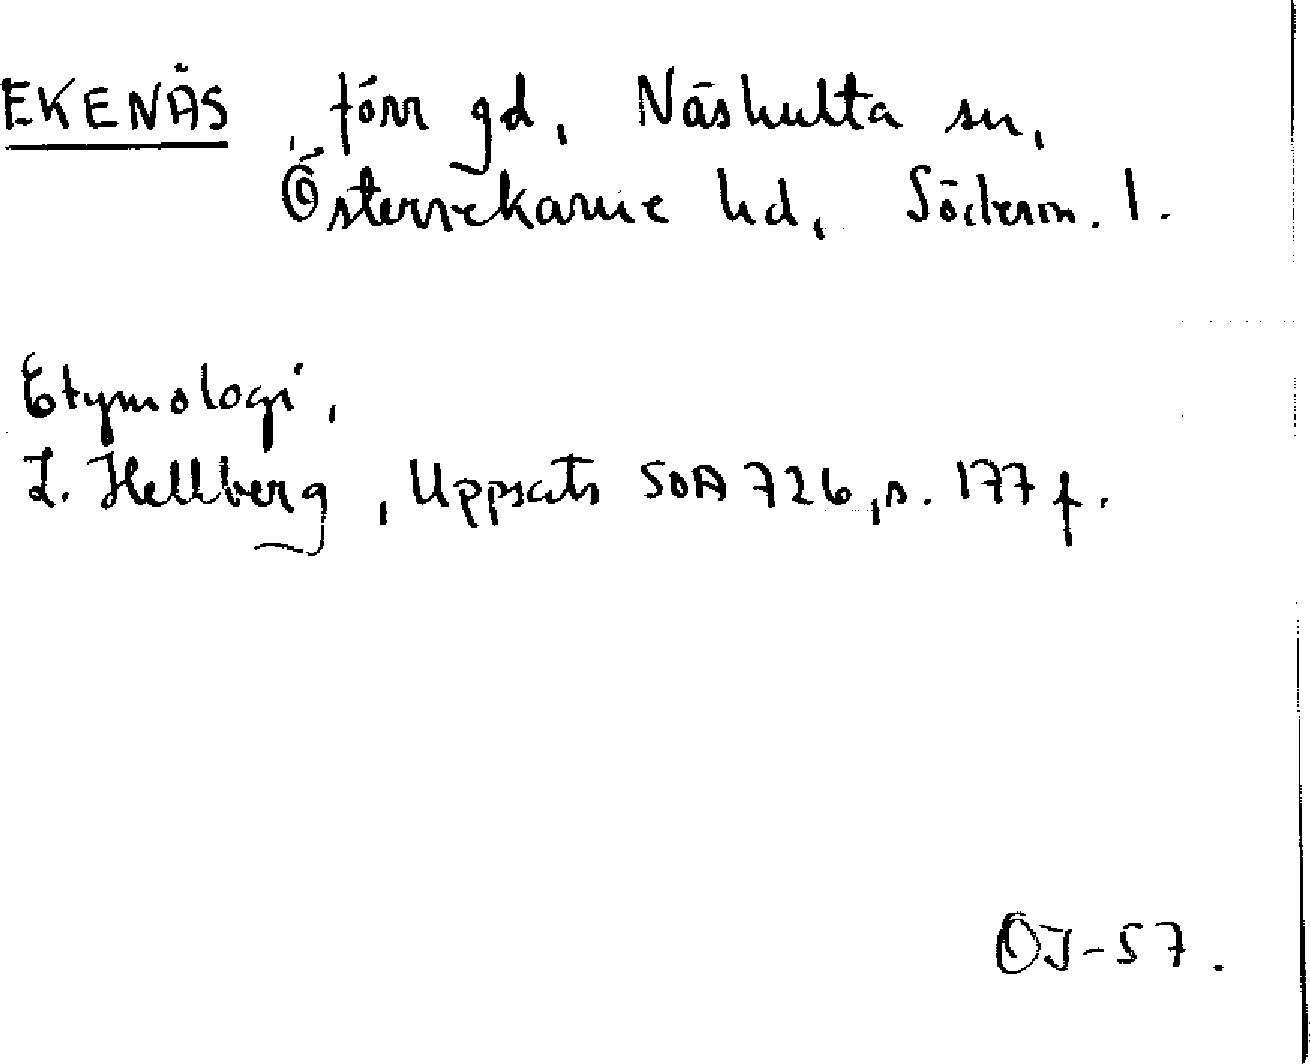 EKENÄS, förr gd, Näshulta sn,
Österrekarne hd, Söderm. l.
Etymologi,
L. Hellberg, Uppsats SOA 726, s. 177 f.
OJ-57.